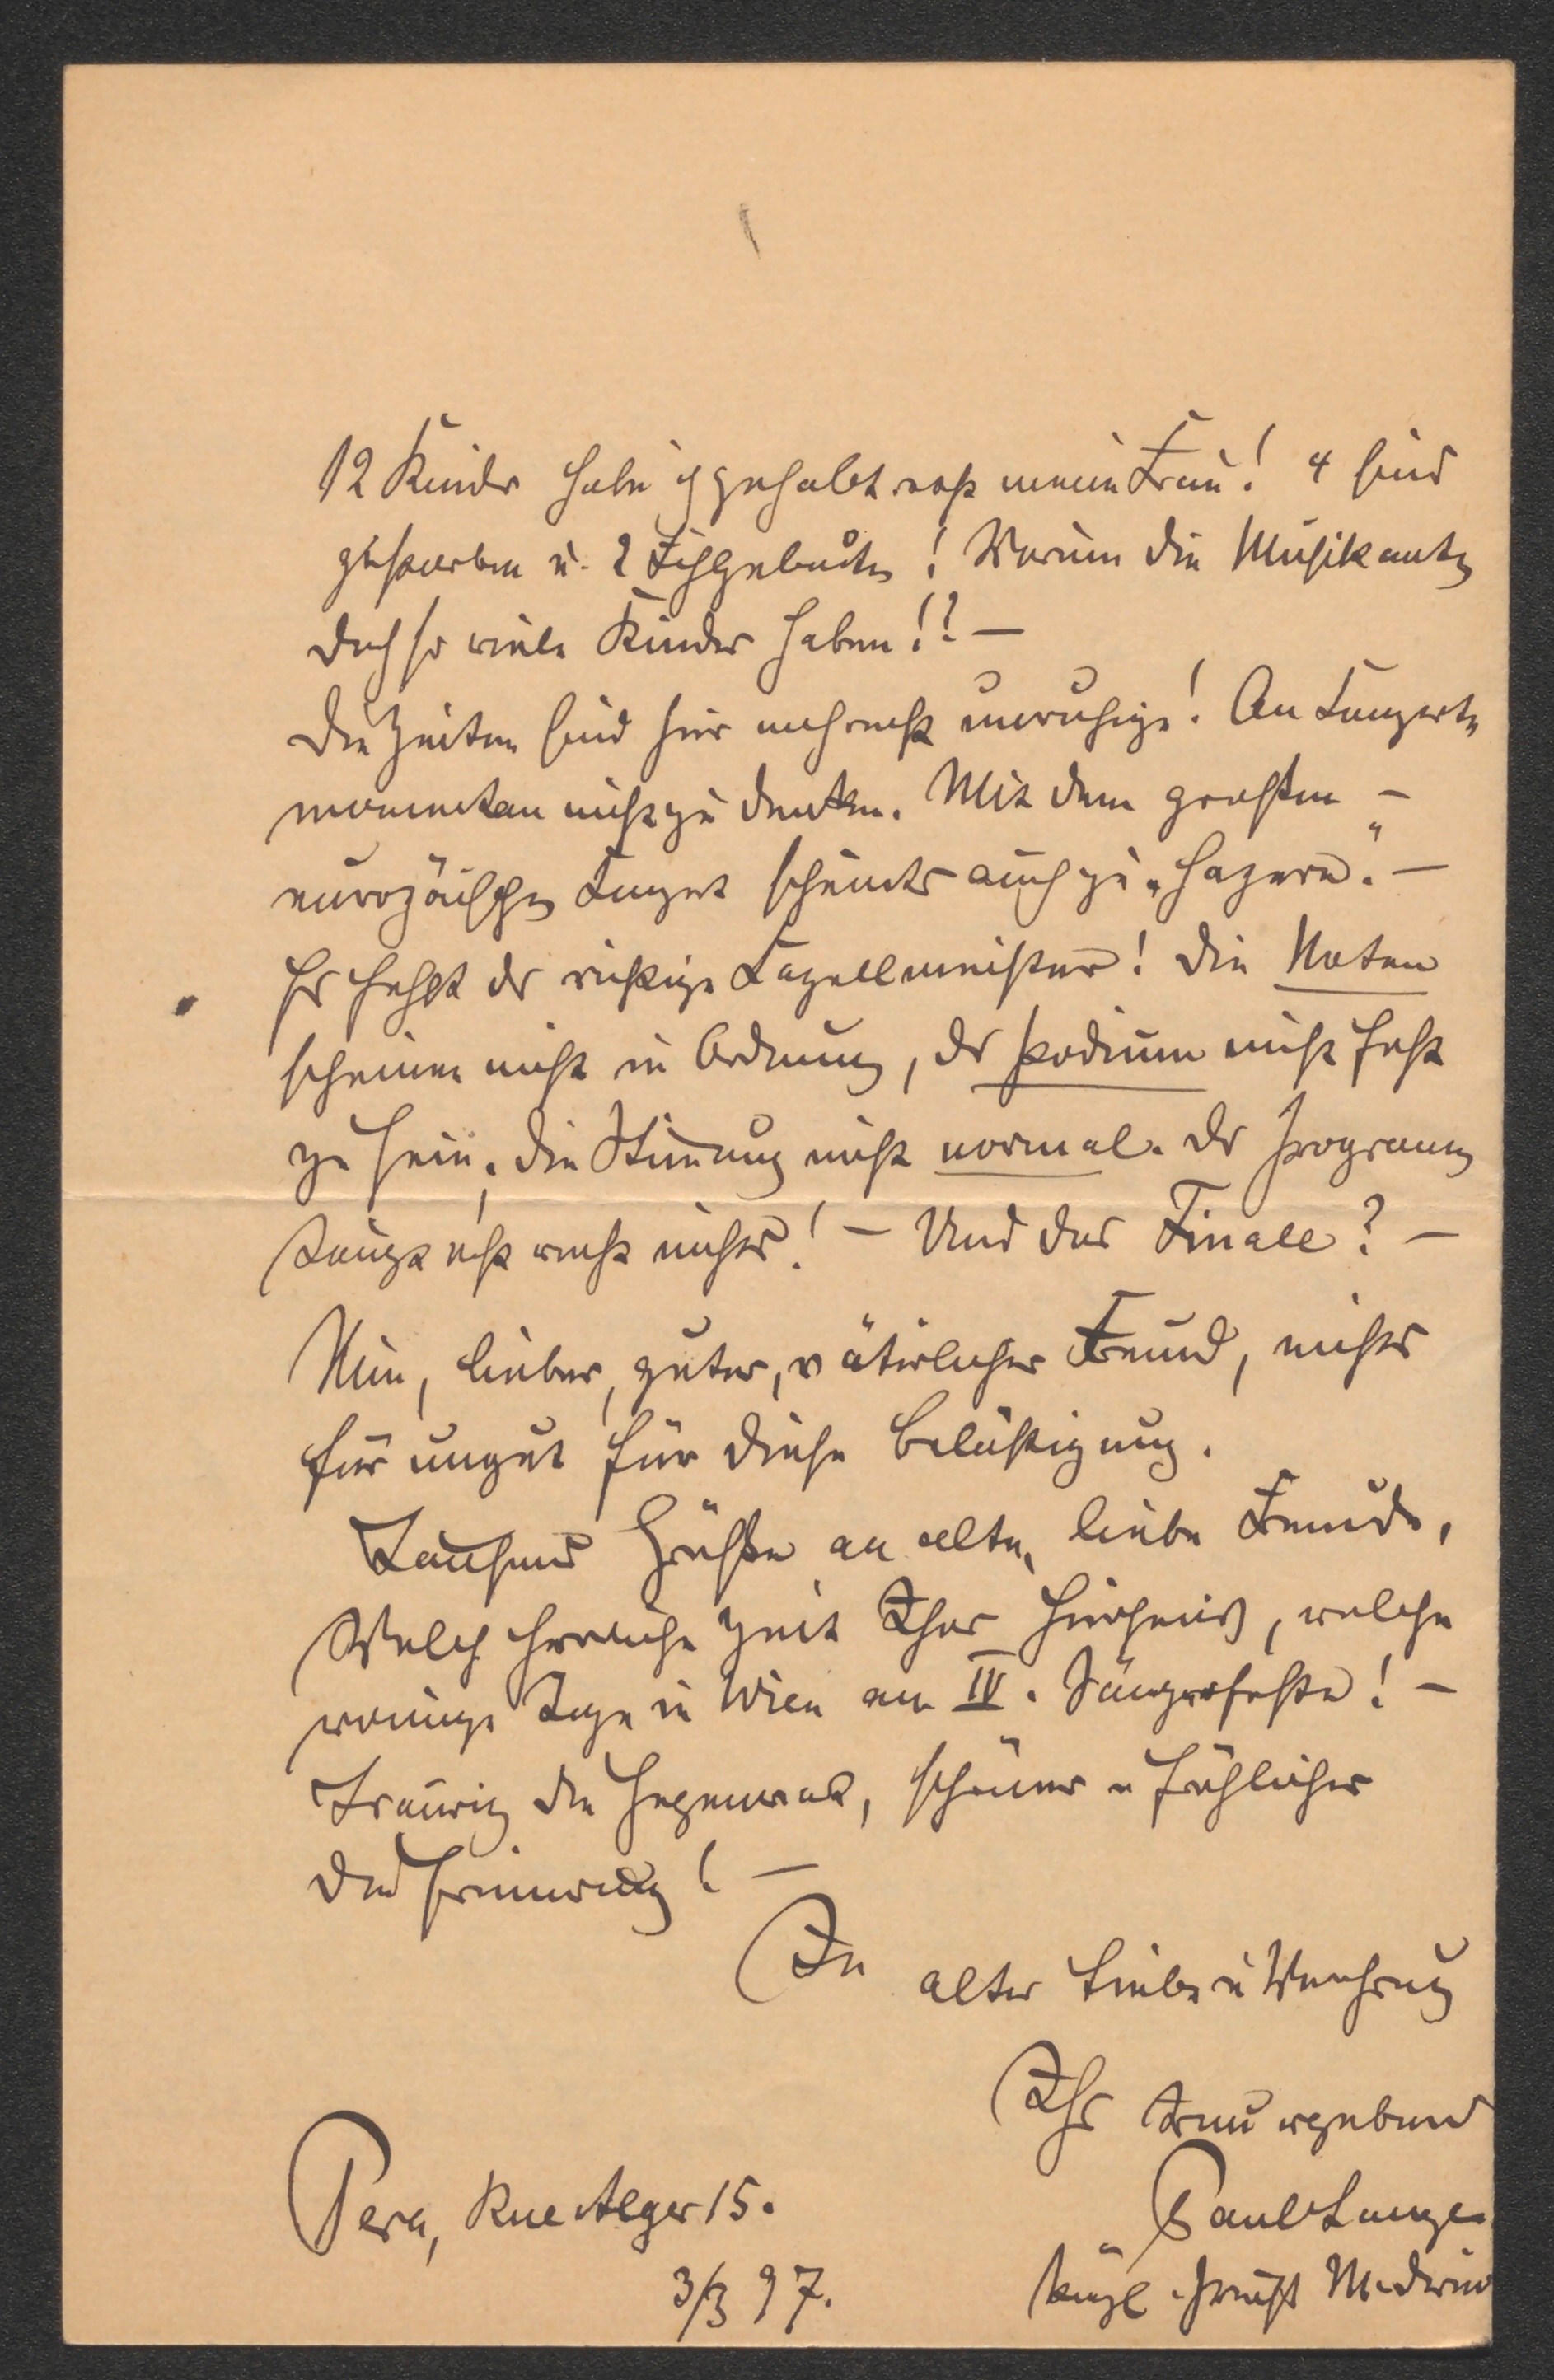 12 Kinder habe ich gehabt resp meine Frau! 4 sind
gestorben u. 2 Fehlgeburten! Warum die Musikanten
doch so viele Kinder haben!? —
Die Zeiten sind hier auch recht unruhige! An Concerte
momentan nicht zu denken. Mit dem grossen —
europäischen Concert scheints auch zu „hapern". —
Es fehlt der richtige Capellmeister! Die Noten
scheinen nicht in Ordnung, das Podium nicht fest
zu sein, die Stimmung nicht normal. Das Programm
taugt erst recht nichts! — Und das Finale? —
Nun, lieber, guter, väterlicher Freund, nichts
für ungut für diese Belästigung.
Tausend Grüsse an alte, liebe Freunde,
Welch herrliche Zeit Ihres Hierseins, welche
wonnige Tage in Wien am IV. Sängerfeste! —
Traurig die Gegenwart, schöner u fröhlicher
die Erinnerung! —
In alter Liebe u Verehrung
Ihr treu ergebener
Pera, Rue Alger 15.
Paul Lange
3/3 97.
Kingl. Preuss M.direc